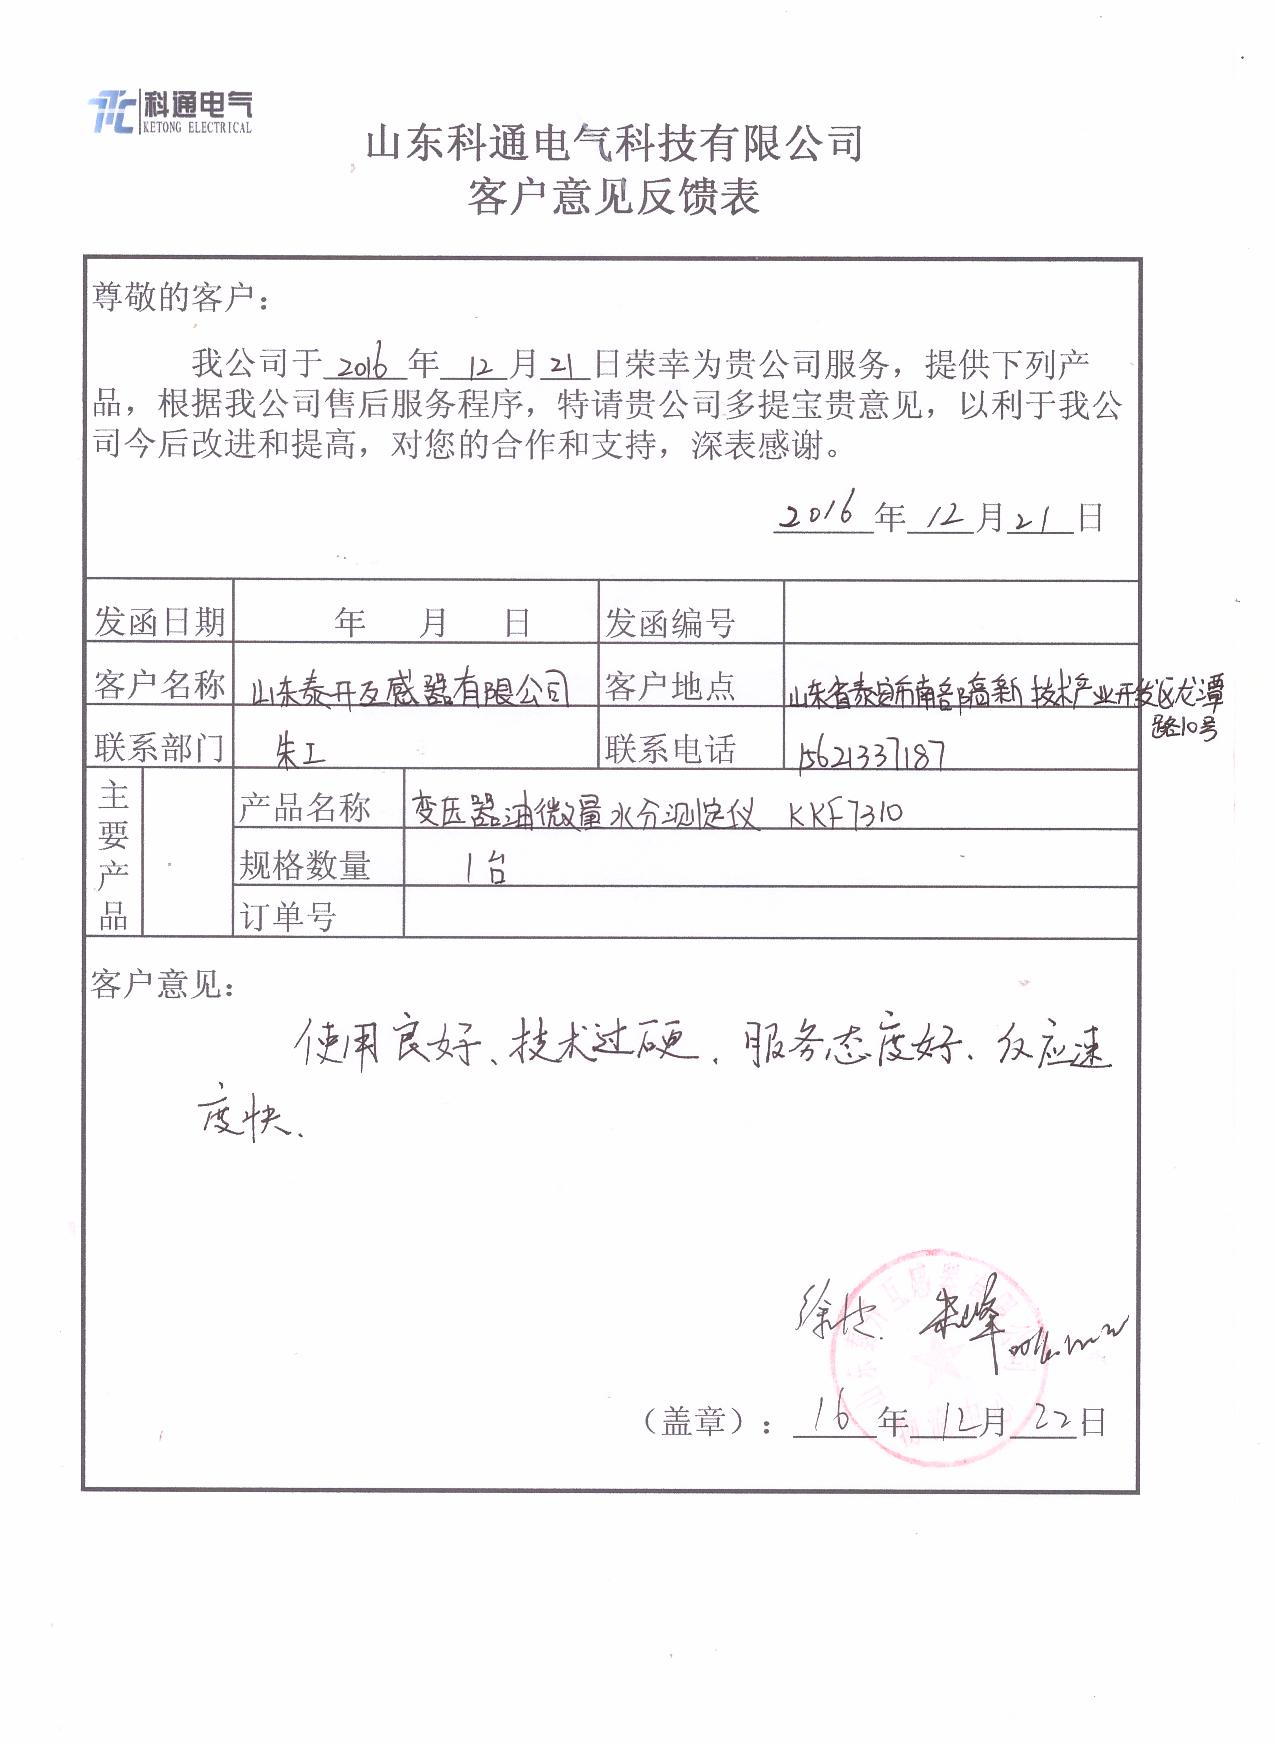 科通电气
KETONG ELECTRICAL
山东科通电气科技有限公司
客户意见反馈表
尊敬的客户：
我公司于 2016 年 12 月 21 日荣幸为贵公司服务，提供下列产
品，根据我公司售后服务程序，特请贵公司多提宝贵意见，以利于我公
司今后改进和提高，对您的合作和支持，深表感谢。
2016 年 12 月 21 日
发函日期 年 月 日 发函编号
客户名称 山东泰开互感器有限公司 客户地点 山东省泰安市南部高新技术产业开发区龙潭
路10号
联系部门 朱工 联系电话 15621337187
主要产品
产品名称 变压器油微量水分测定仪 KKF7310
规格数量 1台
订单号
客户意见：
使用良好、技术过硬、服务态度好、反应速
度快、
朱峰
（盖章）： 16 年 12 月 22 日